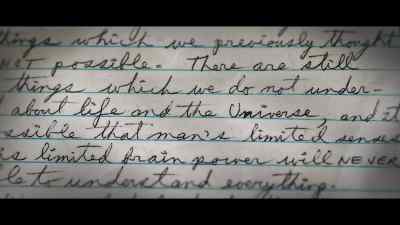 things which we previously thought
NOT possible. There are still
things which we do not under-
about life and the Universe, and it
ssible that man's limited senses
is limited brain power will NEVER
le to understand everything.